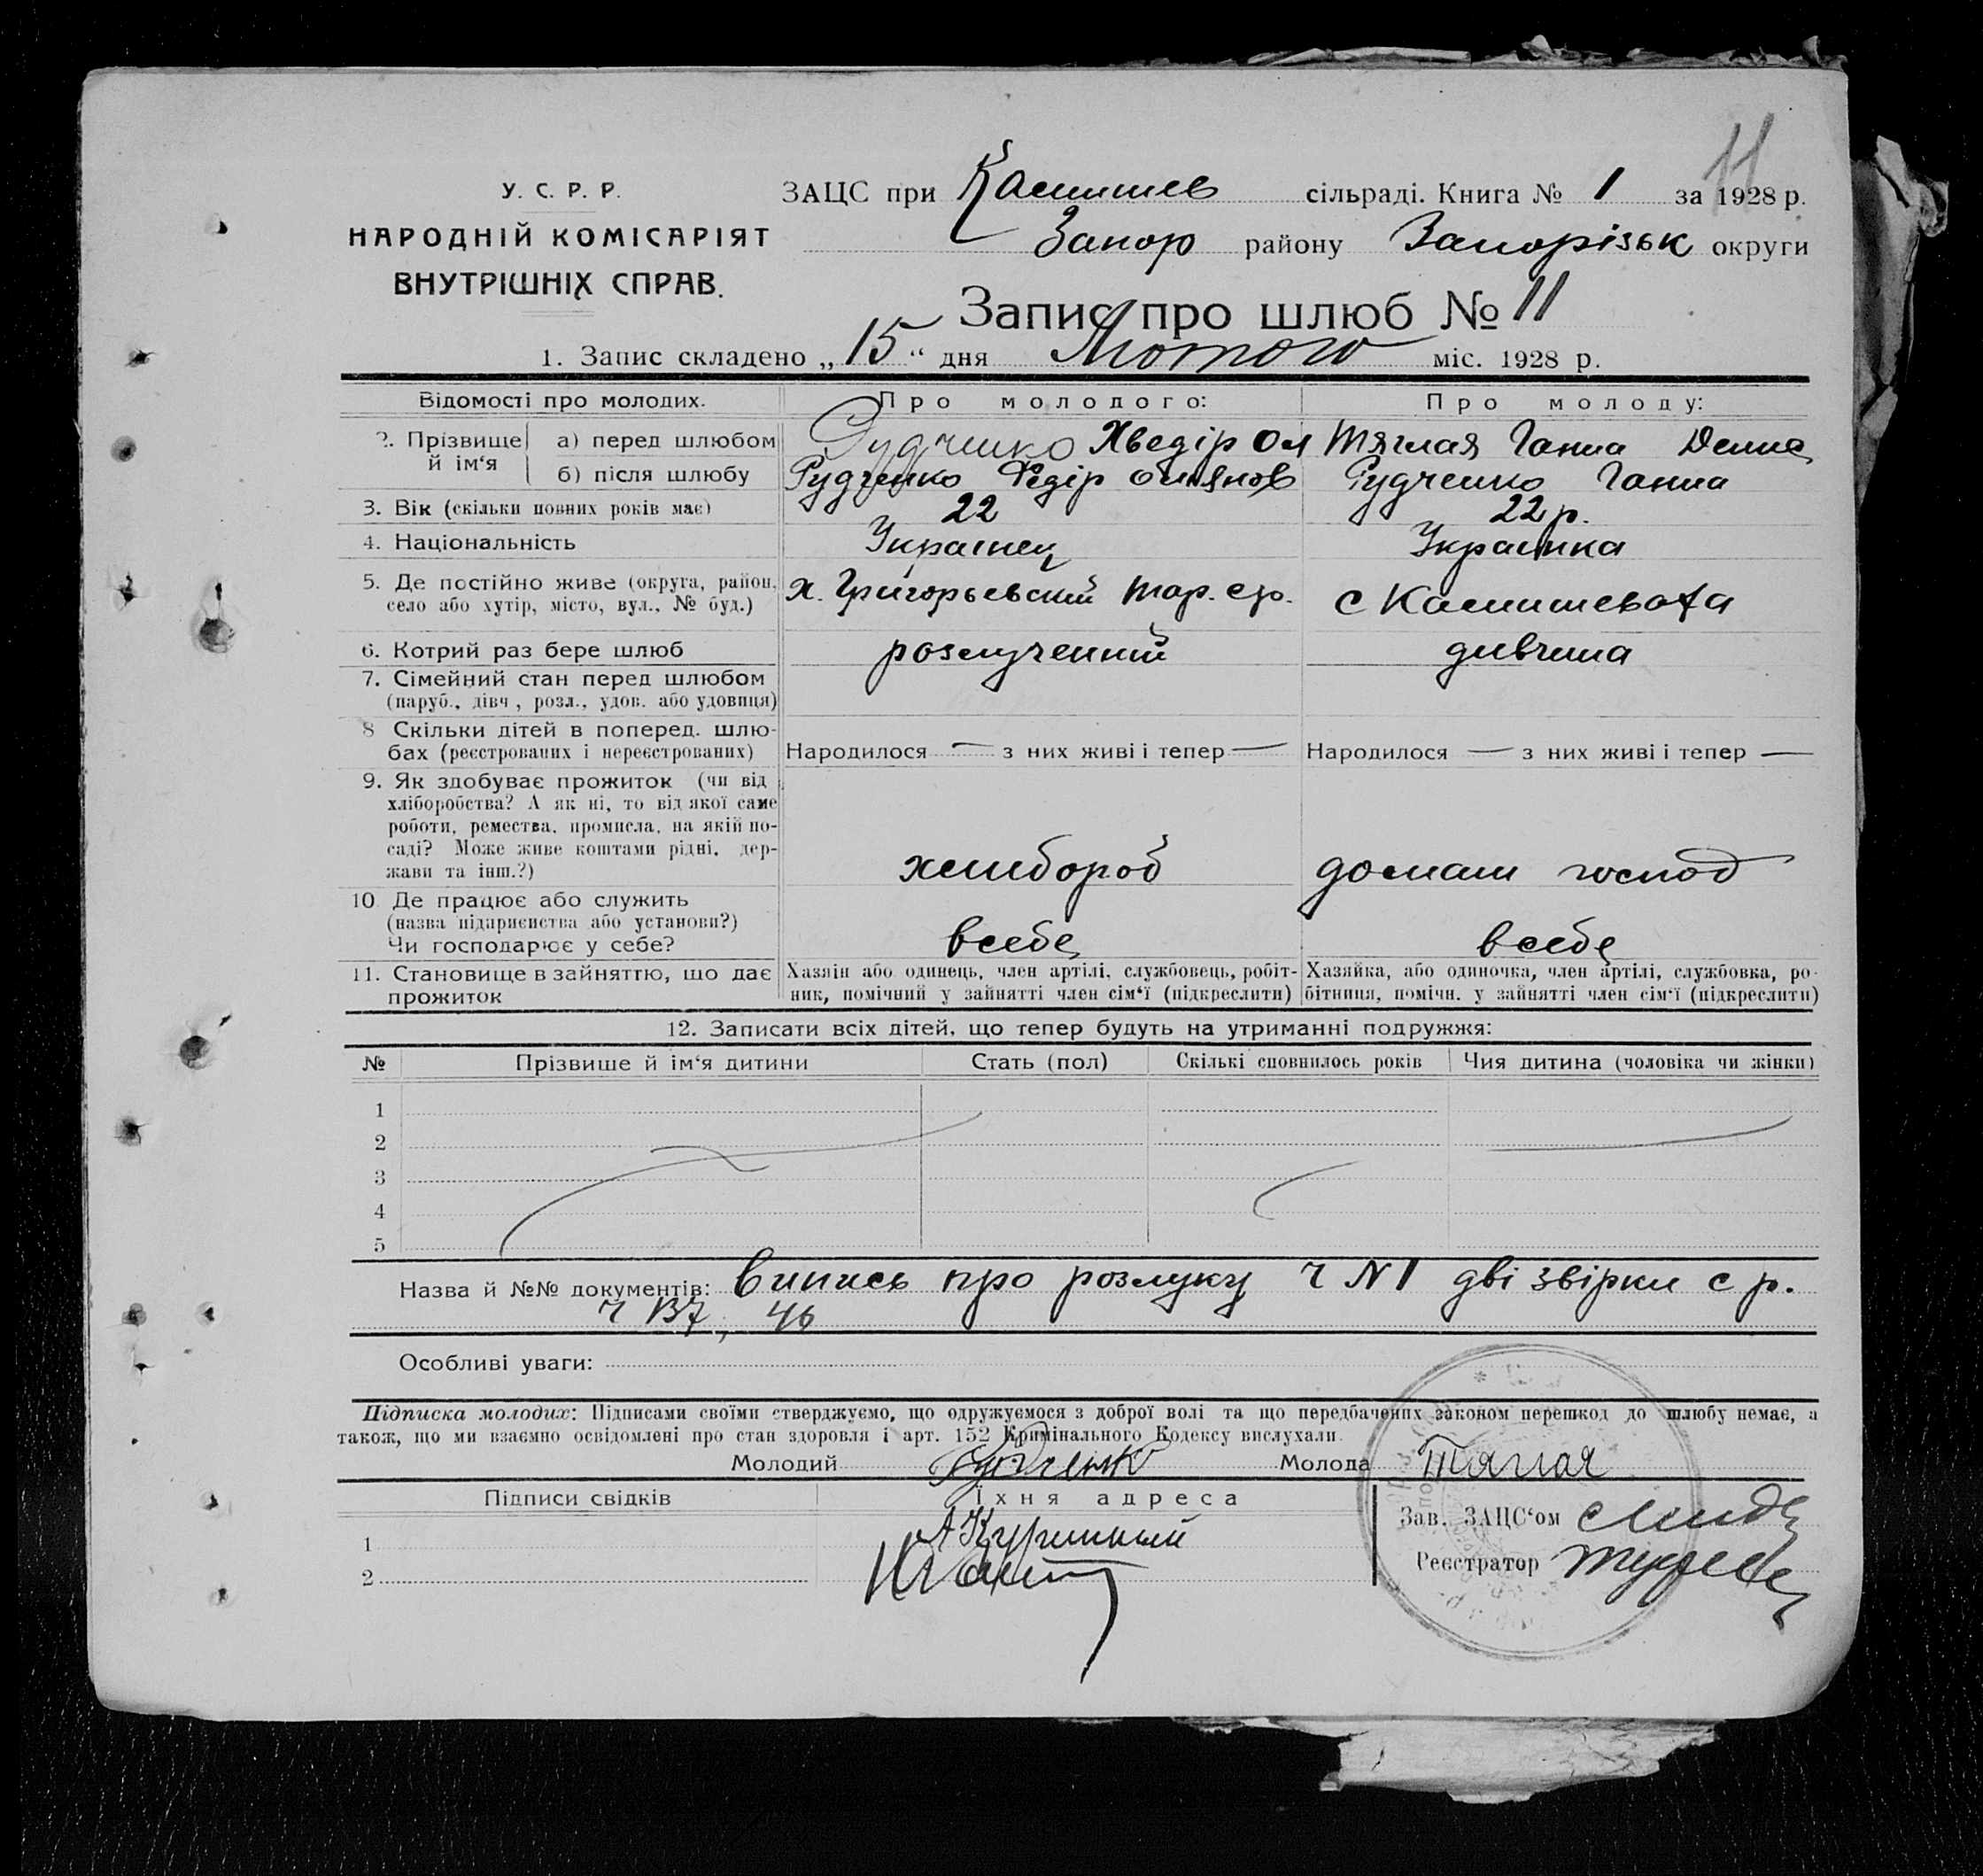 11
У. С. Р. Р.
НАРОДНІЙ КОМІСАРІЯТ
ВНУТРІШНІХ СПРАВ.
ЗАЦС при Камишев сільраді. Книга № 1 за 1928 р.
Запор району Запорізьк округи
Запис про шлюб № 11
1. Запис складено „15“ дня Лютого міс. 1928 р.
Відомості про молодих. Про молодого: Про молоду:
2. Прізвище й ім‘я а) перед шлюбом Рудченко Хведір Ом Тяглая Ганна Демия
б) після шлюбу Рудченко Федір Рудченко Ганна
3. Вік (скільки повних років має) 22 22 р.
4. Національність Украінец Украинка
5. Де постійно живе (округа, район, х. Григорьевский с Камишеваха
село або хутір, місто, вул., № буд.)
6. Котрий раз бере шлюб розлученний дивчина
7. Сімейний стан перед шлюбом
(паруб., дівч , розл., удов. або удовиця)
8 Скільки дітей в поперед. шлю-
бах (реєстрованих і нереєстрованих) Народилося — з них живі і тепер — Народилося — з них живі і тепер —
9. Як здобуває прожиток (чи від
хліборобства? А як ні, то від якої саме
роботи, ремества, промисла, на якій по-
саді? Може живе коштами рідні, дер-
жави та інш.?) хлибороб домаш господ
10 Де працює або служить
(назва підприємства або установи?)
Чи господарює у себе? всебе всебе
11. Становище в зайняттю, що дає Хазяїн або одинець, член артілі, службовець, робіт- Хазяйка, або одиночка, член артілі, службовка, ро-
прожиток ник, помічний у зайнятті член сім‘ї (підкреслити) бітниця, помічн. у зайнятті член сім‘ї (підкреслити)
12. Записати всіх дітей, що тепер будуть на утриманні подружжя:
№ Прізвише й ім‘я дитини Стать (пол) Скількі сповнилось років Чия дитина (чоловіка чи жінки)
1
2
3
4
5
Назва й №№ документів: Випись про розлуку ч N1 дві звірки с р.
46
Особливі уваги:
Підписка молодих: Підписами своїми стверджуємо, що одружуємося з доброї волі та що передбачених законом перешкод до шлюбу немає, а
також, що ми взаємно освідомлені про стан здоровля і арт. 152 Кримінального Кодексу вислухали.
Молодий Рудченко Молода Тяглая
Підписи свідків Їхня адреса
1
2
Зав. ЗАЦС‘ом
Реєстратор